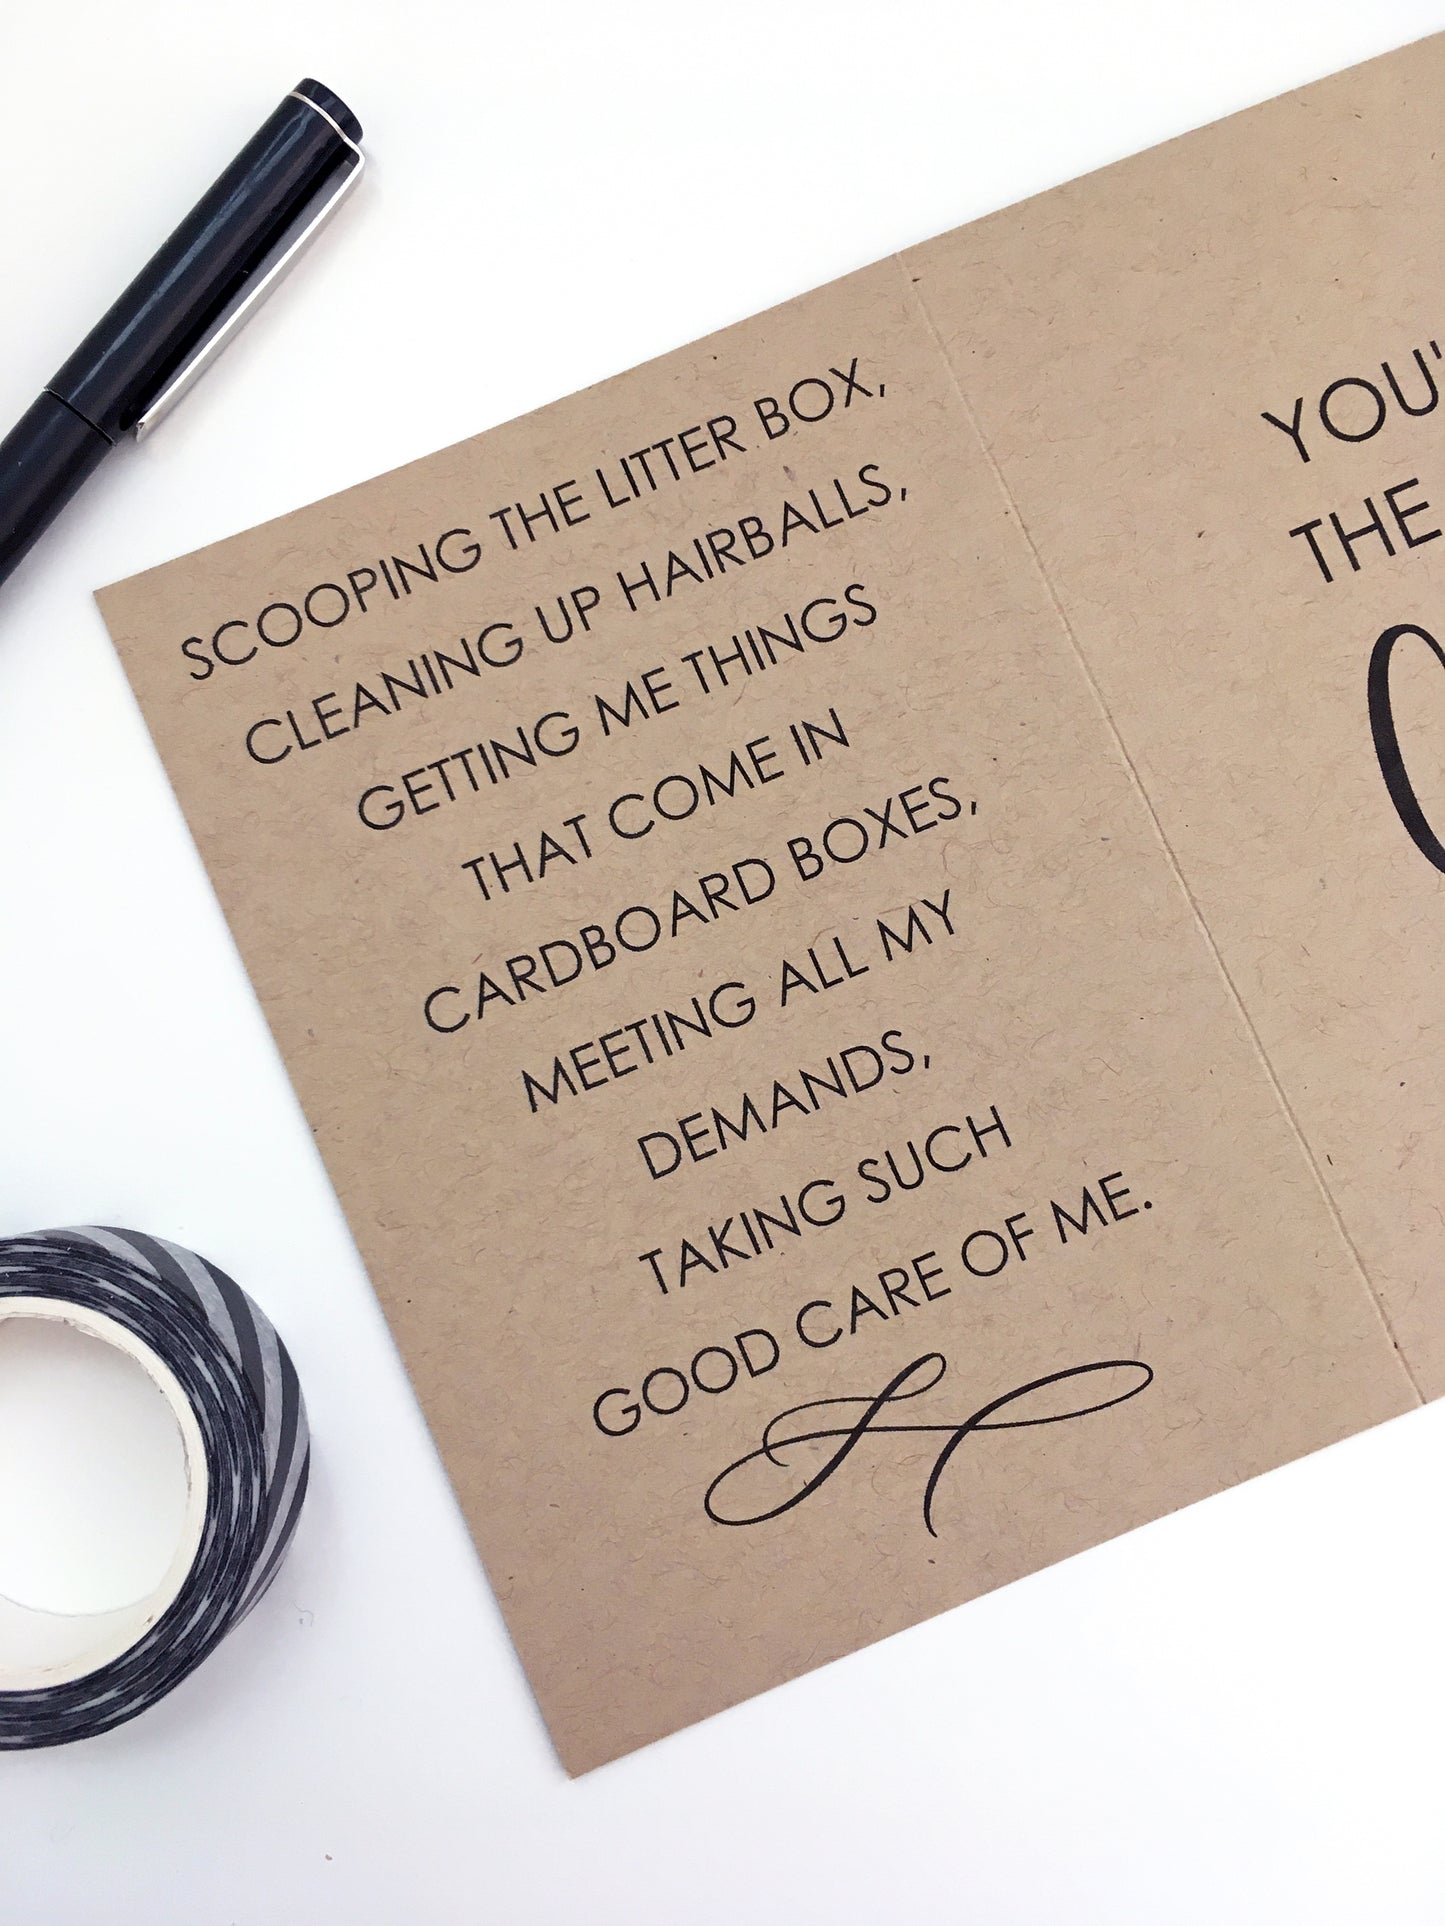 SCOOPING THE LITTER BOX,
CLEANING UP HAIRBALLS,
GETTING ME THINGS
THAT COME IN
CARDBOARD BOXES,
MEETING ALL MY
DEMANDS,
TAKING SUCH
GOOD CARE OF ME.
YOU'
THE